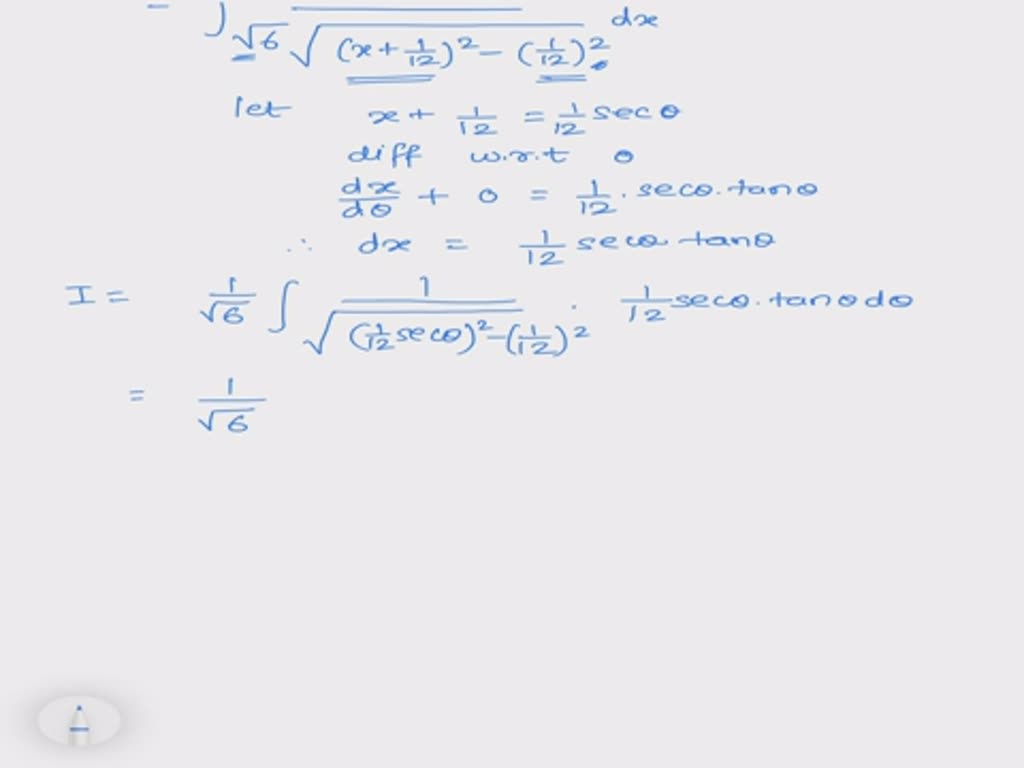 = ∫ 1/(√6 √((x + 1/12)² - (1/12)²)) dx
let x + 1/12 = 1/12 sec θ
diff w.r.t θ
dx/dθ + 0 = 1/12 . sec θ . tan θ
∴ dx = 1/12 sec θ tan θ
I = 1/√6 ∫ 1/√((1/12 sec θ)² - (1/12)²) . 1/12 sec θ . tan θ dθ
= 1/√6